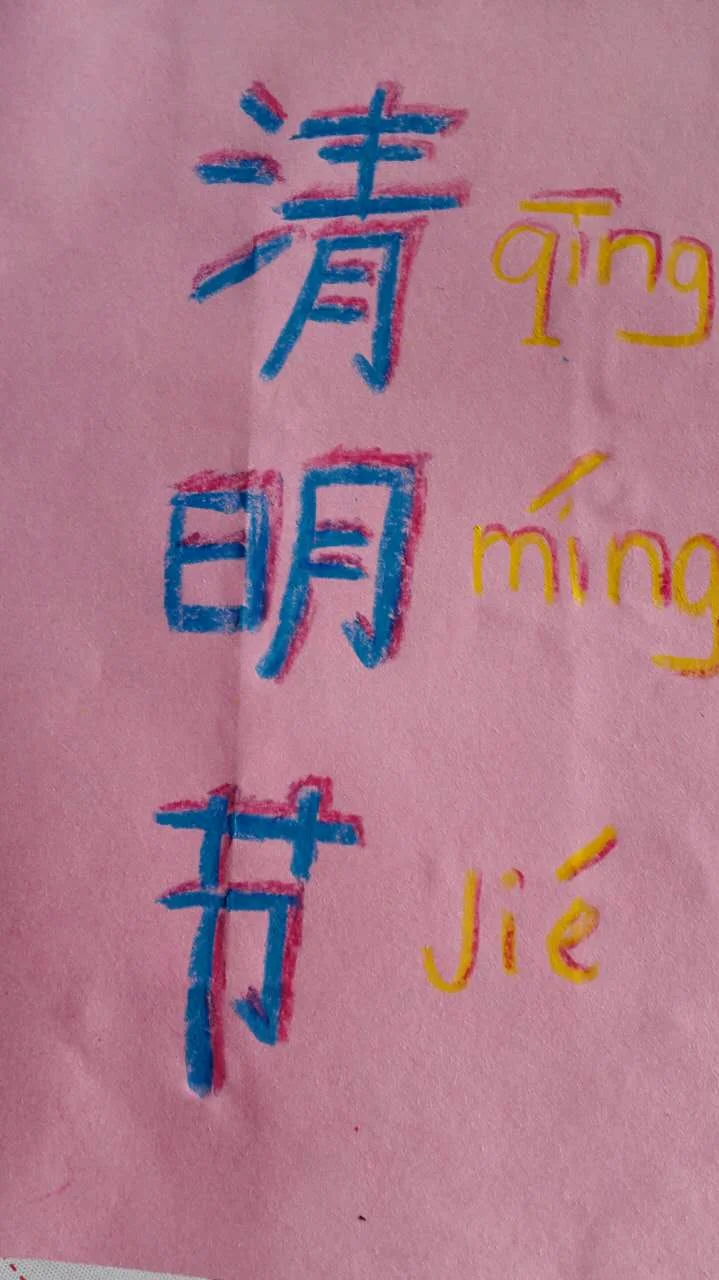 清 qīng
明 míng
节 Jié